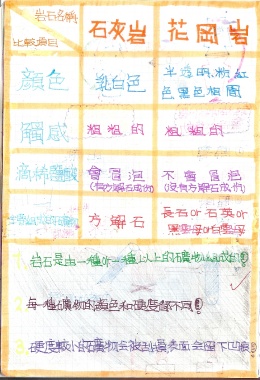 岩石名稱
比較項目
石灰岩
花岡岩
顏色
乳白色
半透明、粉紅
色黑色相間
觸感
粗粗的
粗粗的
滴稀鹽酸
會冒泡
(有方解石成份)
不會冒泡
(沒有方解石成份)
方解石
長石or石英or
黑雲母or白雲母
1.岩石是由一種or一種以上的礦物組成的!
2.每一種礦物的顏色和硬度都不同!
3.硬度較小的礦物會被刮傷表面會凹下凹痕!